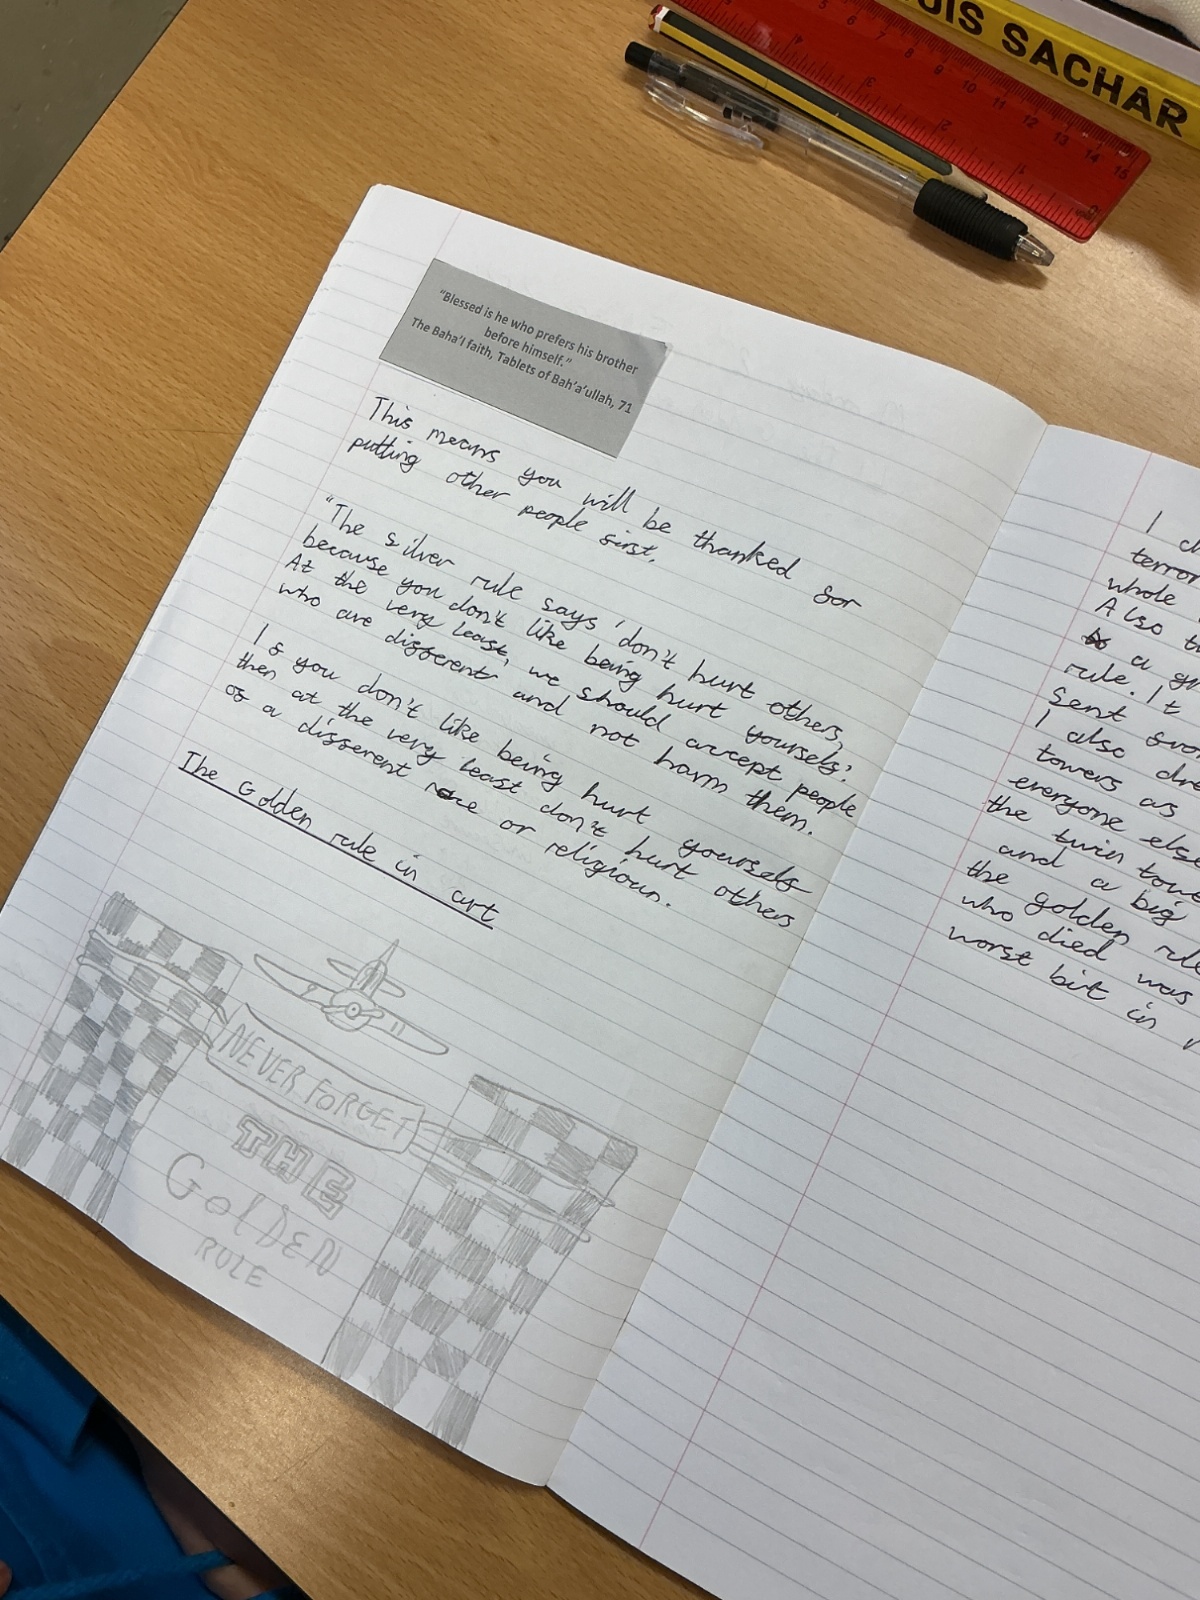 OUIS SACHAR
5 6 7 8 9 10 11 12 13 14 15
"Blessed is he who prefers his brother
before himself."
The Baha'I faith, Tablets of Bah'a'ullah, 71
This means you will be thanked for
putting other people first.
"The silver rule says 'don't hurt others,
because you don't like being hurt yourselfs'.
At the very least, we should accept people
who are different and not harm them.
If you don't like being hurt yourselfs
then at the very least don't hurt others
of a different race or religious.
The Golden rule in art
NEVER FORGET
THE
GOlDEN
RULE
I
terror
whole
Also
a
rule. It
sent
I also
towers as
everyone else
the twin
and a big
the golden rule
who died was
worst but in